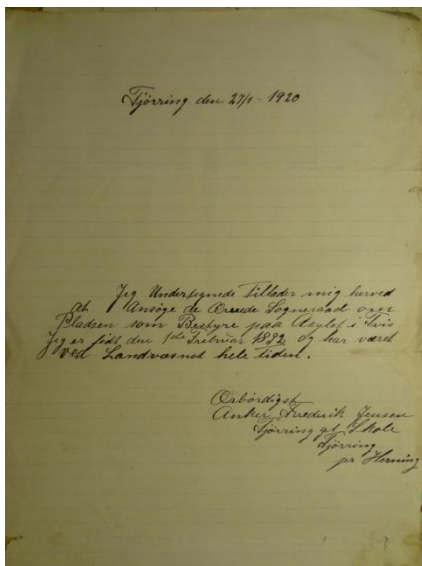 Tjörring den 27/1 - 1920
Jeg Undersignede Tillader mig herved
at Ansöge de Ærede Sogneraad om
Pladsen som Bestyre paa Asylet i Tvis
Jeg er födt den 1ste Februar 1882 og har været
ved Landvæsnet hele tiden.
Ærbördigst
Anker Frederik Jensen
Tjörring gl Skole
Tjörring
pr Herning